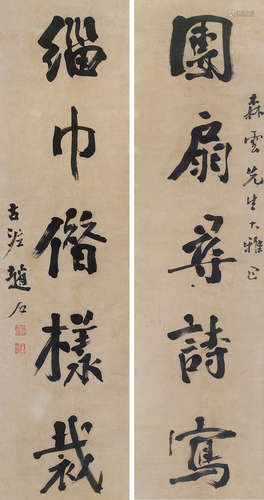 森雲先生大雅正
團扇尋詩寫
緇巾借樣裁
古泥趙石